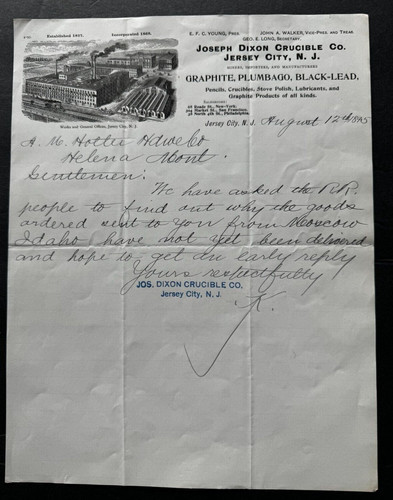 Established 1827. Incorporated 1868.
E. F. C. YOUNG, PRES. JOHN A. WALKER, VICE-PRES. AND TREAS.
GEO. E. LONG, SECRETARY.
JOSEPH DIXON CRUCIBLE CO.
JERSEY CITY, N. J.
MINERS, IMPORTERS, AND MANUFACTURERS
GRAPHITE, PLUMBAGO, BLACK-LEAD,
Pencils, Crucibles, Stove Polish, Lubricants, and
Graphite Products of all kinds.
68 Reade St., New-York.
Market St., San Francisco.
North 4th St., Philadelphia.
Works and General Offices, Jersey City, N. J.
Jersey City, N. J. August 12th 1895
A. M. Holter Hdwe Co
Helena Mont.
Gentlemen:
We have asked the R.R.
people to find out why the goods
ordered sent to you from Moscow
Idaho have not yet been delivered
and hope to get an early reply
Yours respectfully
JOS. DIXON CRUCIBLE CO.
Jersey City, N. J.
K.